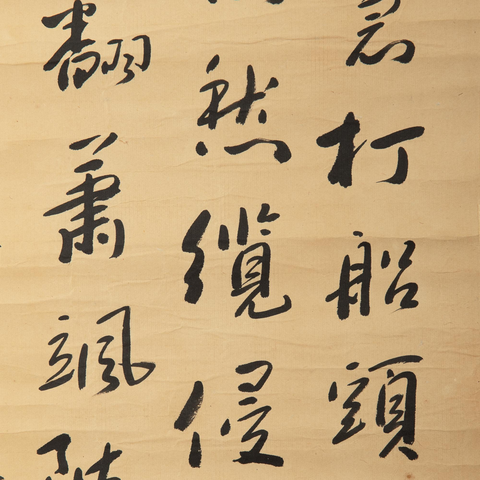 急打船頭
愁纜侵
翻蕭颯